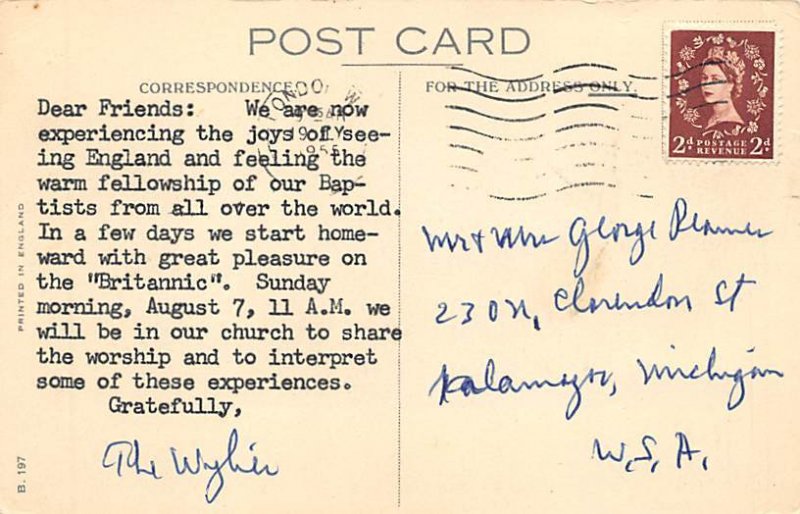 POST CARD
CORRESPONDENCE.
FOR THE ADDRESS ONLY.
LONDON W
1955
2d POSTAGE REVENUE 2d
Dear Friends: We are now
experiencing the joys of see-
ing England and feeling the
warm fellowship of our Bap-
tists from all over the world.
In a few days we start home-
ward with great pleasure on
the "Britannic". Sunday
morning, August 7, 11 A.M. we
will be in our church to share
the worship and to interpret
some of these experiences.
Gratefully,
The Wylies
Mr & Mrs George
230 N, Clarendon St
Kalamazoo, Michigan
U.S.A.
PRINTED IN ENGLAND
B. 197